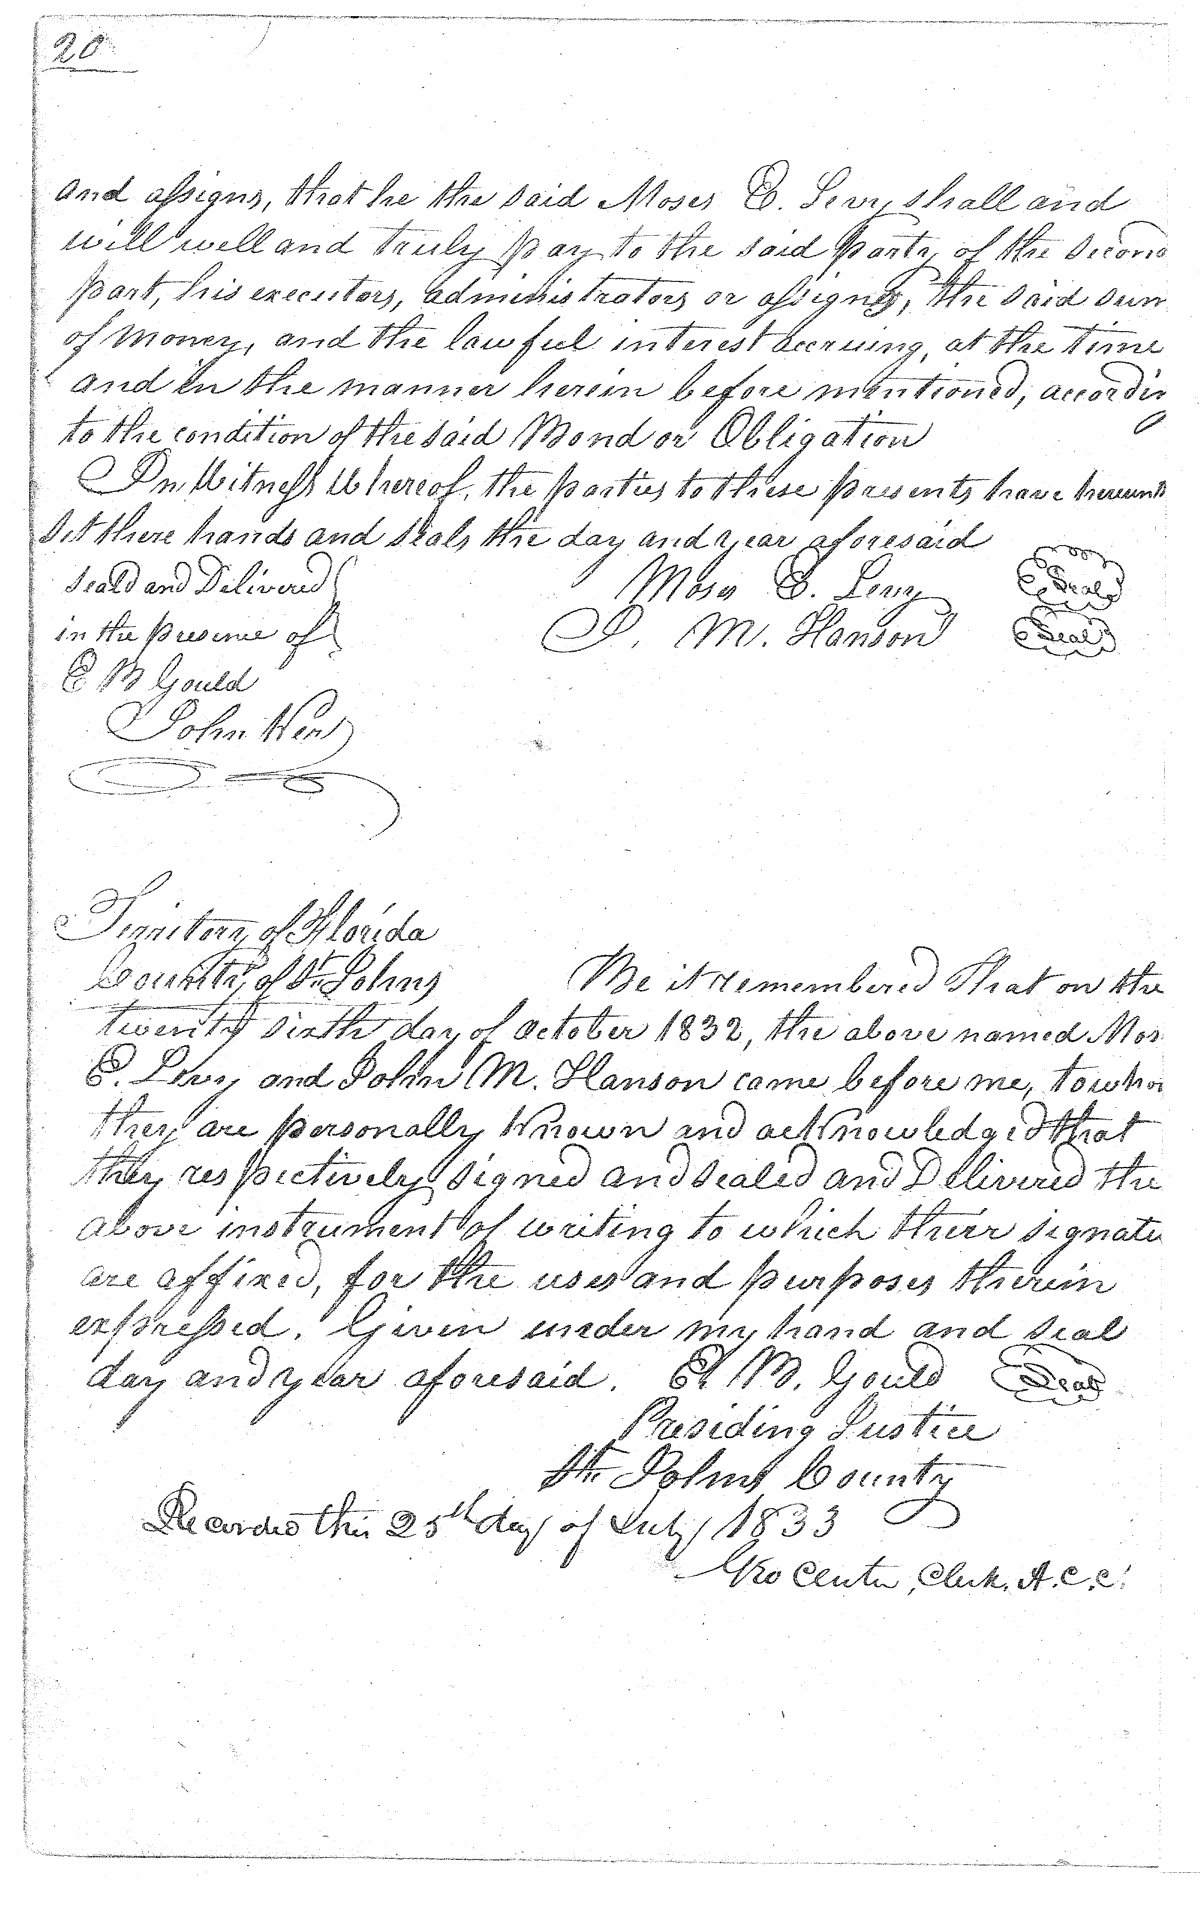 20
and assigns, that he the said Moses E. Levy shall and
will well and truly pay to the said party of the second
part, his executors, administrators or assigns, the said sum
of money, and the lawful interest accruing, at the time
and in the manner herein before mentioned, accordin
g
to the condition of the said Bond or Obligation
In Witness Whereof, the parties to these presents have hereunto
set there hands and seals the day and year aforesaid
Seald and Delivered Moses E. Levy Seal
in the presence of J. M. Hanson Seal
E B Gould
John
Territory of Florida
County of St. Johns Be it remembered That on the
twenty sixth day of October 1832, the above named Mos
E. Levy and John M. Hanson came before me, to who
they are personally Known and acKnowledged that
they respectively signed and sealed and Delivered the
above instrument of writing to which therr signatu
are affixed, for the uses and purposes therein
expressed. Given under my hand and seal
day and year aforesaid. E. B. Gould Seal
Presiding Justice
St. Johns County
Recorded this 25th day of July 1833
Geo Center, Clerk. A. C. C.